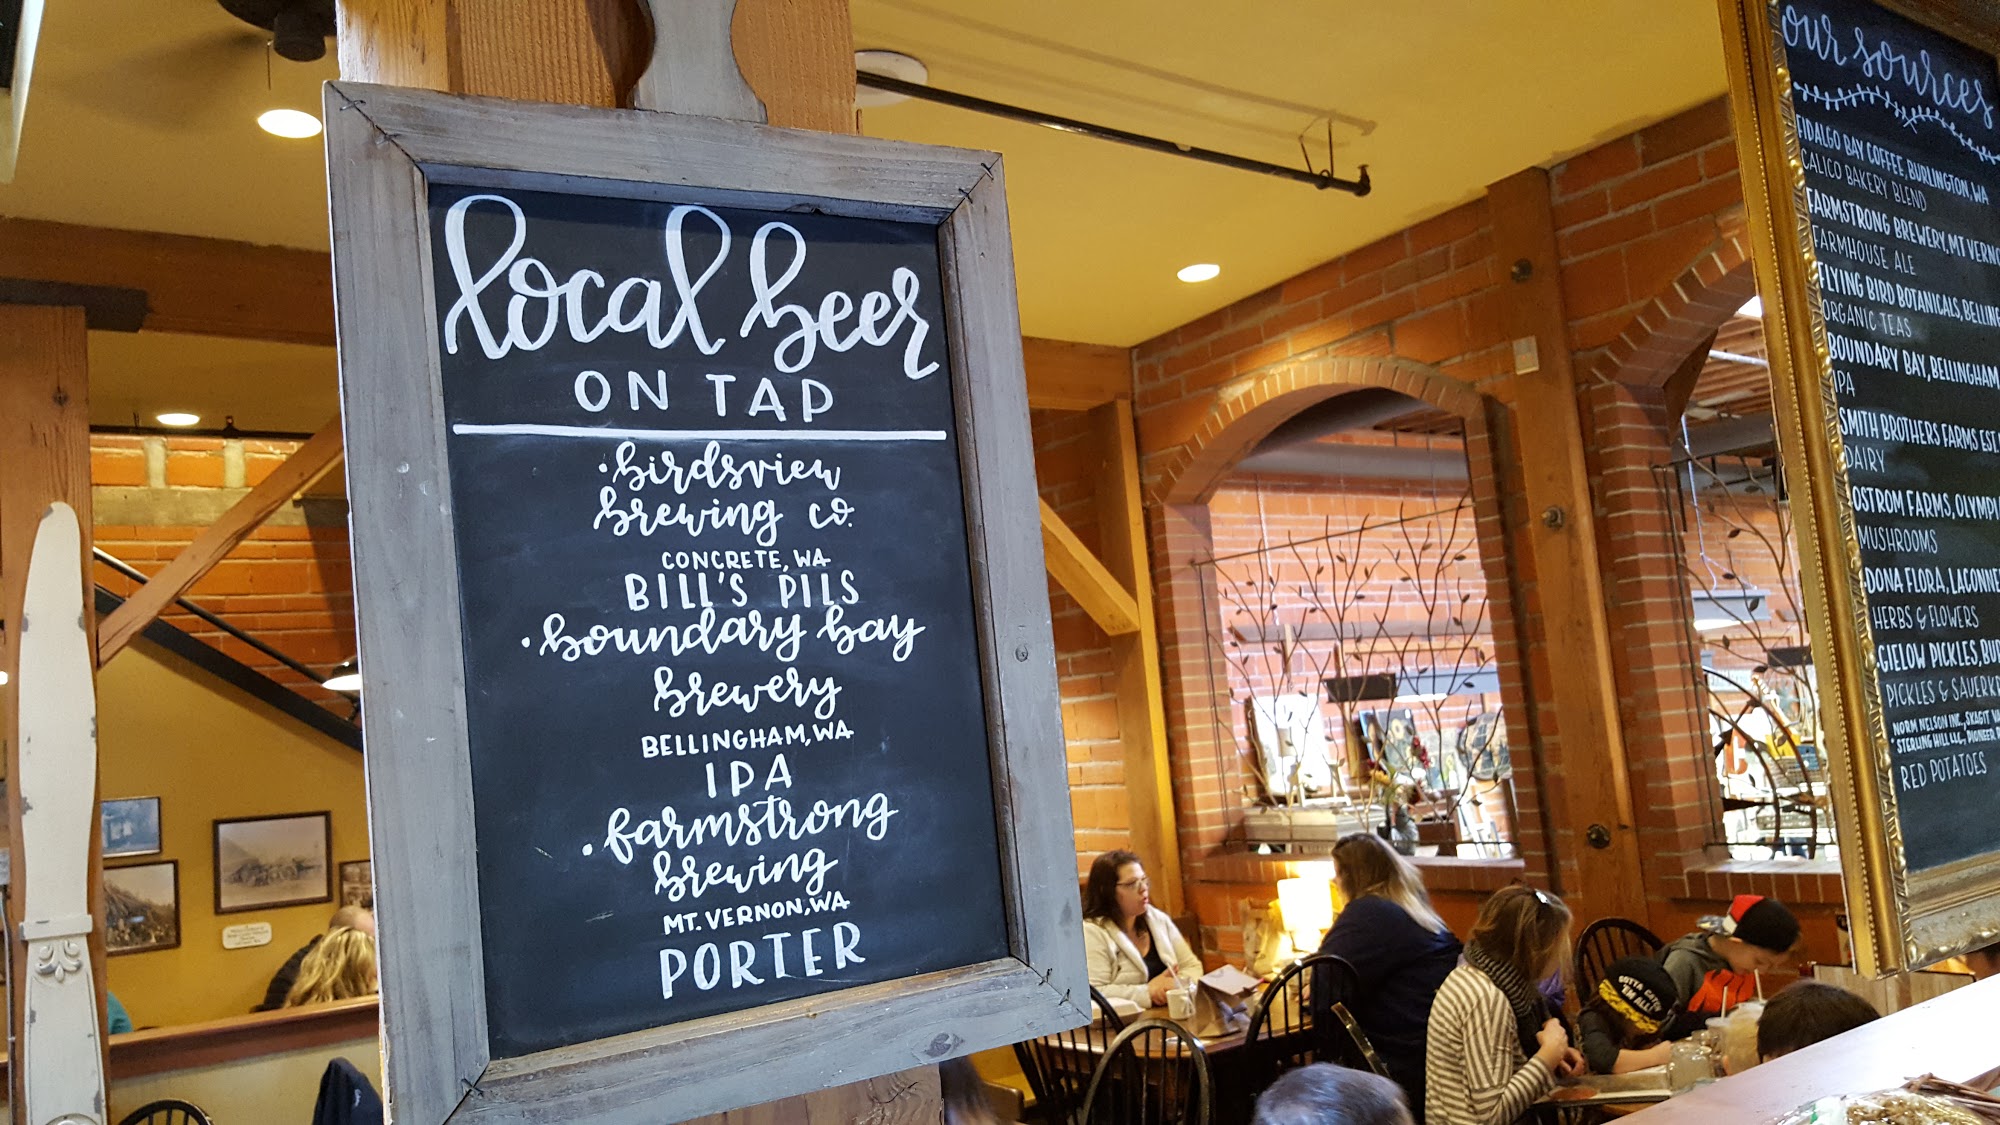 local beer
ON TAP
• birdsview
brewing co.
CONCRETE, WA
BILL'S PILS
• boundary bay
brewery
BELLINGHAM, WA
IPA
• farmstrong
brewing
MT. VERNON, WA
PORTER
our sources
FIDALGO BAY COFFEE, BURLINGTON, WA
CALICO BAKERY BLEND
FARMSTRONG BREWERY, MT VERNO
FARMHOUSE ALE
FLYING BIRD BOTANICALS, BELLING
ORGANIC TEAS
BOUNDARY BAY, BELLINGHAM,
IPA
SMITH BROTHERS FARMS EST.
DAIRY
OSTROM FARMS, OLYMPI
MUSHROOMS
DONA FLORA, LACONNE
HERBS & FLOWERS
GIELOW PICKLES, BU
PICKLES & SAUERKR
NORM NELSON INC., SKAGIT VA
STERLING HILL LLC., PIONEER P
RED POTATOES
GOTTA CATCH
'EM ALL!